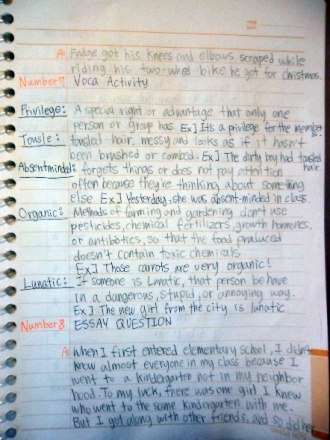 A: Fudge got his knees and elbows scraped while
riding his two-wheel bike he got for christmas.
Number7 Voca Activity
Privilege: A special right or advantage that only one
person or group has. Ex] Its a privilege for the member
Tousle: tousled hair, messy and looks as if it hasn't
been brushed or combed. Ex] The dirty boy had tousled hair.
Absentminded: forgets things or does not pay attention
often because they're thinking about something
else Ex] Yesterday, she was absent-minded in class.
Organic: Methods of farming and gardening don't use
pesticides, chemical fertilizers, growth hormones,
or antibiotics, so that the food produced
doesn't contain toxic chemicals.
Ex] Those carrots are very organic!
Lunatic: If someone is Lunatic, that person behave
in a dangerous, stupid, or annoying way.
Ex] The new girl from the city is lunatic
Number8 ESSAY QUESTION
A: When I first entered elementary school, I didn't
know almost everyone in my class because I
went to a kindergarten not in my neighbor
hood. To my luck, there was one girl I knew
who went to the same kindergarten with me.
But I got along with other friends, and so did her